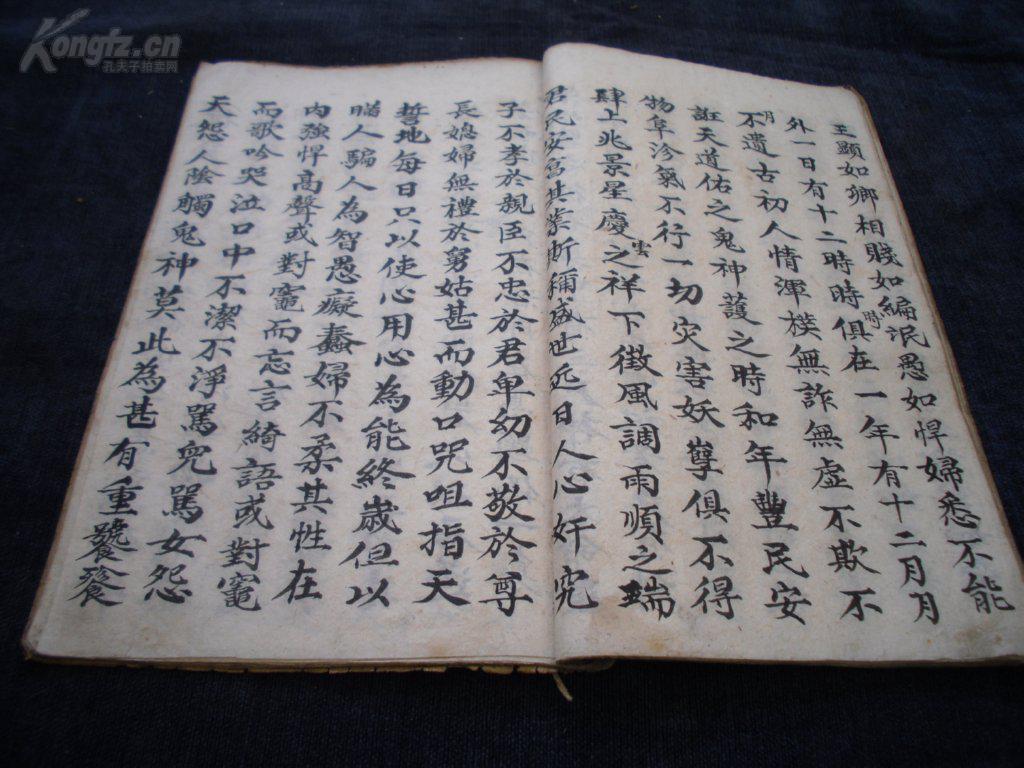 Kongfz.cn
孔夫子拍卖网
王顯如卿相賤如編氓愚如悍婦悉不能
外一日有十二時時時俱在一年有十二月月
月不遺古初人情渾樸無詐無虛不欺不
誑天道佑之鬼神護之時和年豐民安
物阜沴氣不行一切灾害妖孽俱不得
肆上兆景星慶雲之祥下徵風調雨順之瑞
君民安富其業斯稱盛世近日人心奸宄
子不孝於親臣不忠於君卑幼不敬於尊
長媳婦無禮於舅姑甚而動口咒咀指天
誓地每日只以使心用心為能終歲但以
瞒人騙人為智愚癡蠢婦不柔其性在
内強悍高聲或對竈而忘言綺語或對竈
而歌吟哭泣口中不潔不淨罵兒罵女怨
天怨人陰觸鬼神莫此為甚有重饕餮